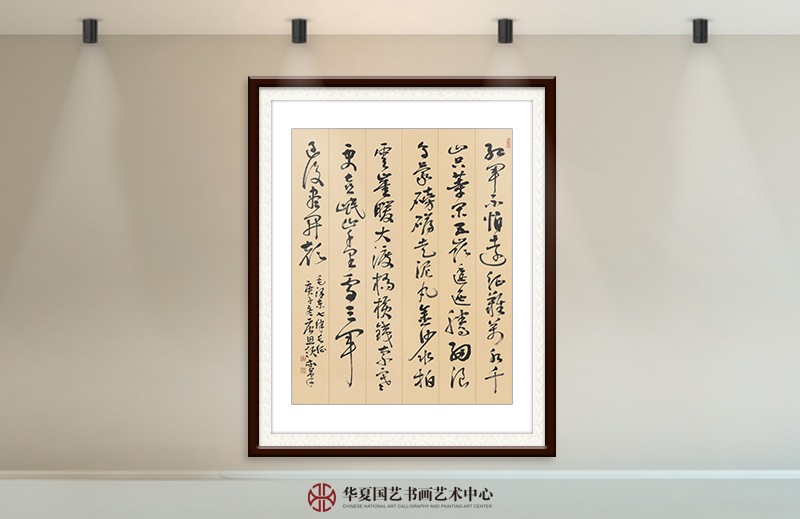 紅軍不怕遠征難萬水千
山只等閒五嶺逶迤騰細浪
烏蒙磅礴走泥丸金沙水拍
雲崖暖大渡橋橫鐵索寒
更喜岷山千里雪三軍
過後盡開顏
毛澤東七律長征
庚子冬
华夏国艺书画艺术中心
CHINESE NATIONAL ART CALLIGRAPHY AND PAINTING ART CENTER